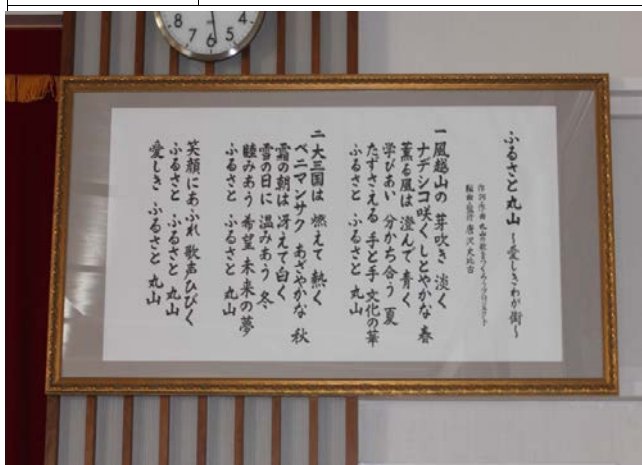 ふるさと 丸山 ~愛しきわが街~
作詞・作曲 丸山の歌をつくろうプロジェクト
編曲・監修 唐沢史比古
一 風越山の 芽吹き 淡く
ナデシコ咲く しとやかな 春
薫る風は 澄んで 青く
学びあい 分かち合う 夏
たずさえる 手と手 文化の華
ふるさと ふるさと 丸山
二 大三国は 燃えて 熱く
ベニマンサク あざやかな 秋
霜の朝は 冴えて 白く
雪の日に 温みあう 冬
睦みあう 希望 未来の夢
ふるさと ふるさと 丸山
笑顔にあふれ 歌声ひびく
ふるさと ふるさと 丸山
愛しき ふるさと 丸山
8
7
6
5
4